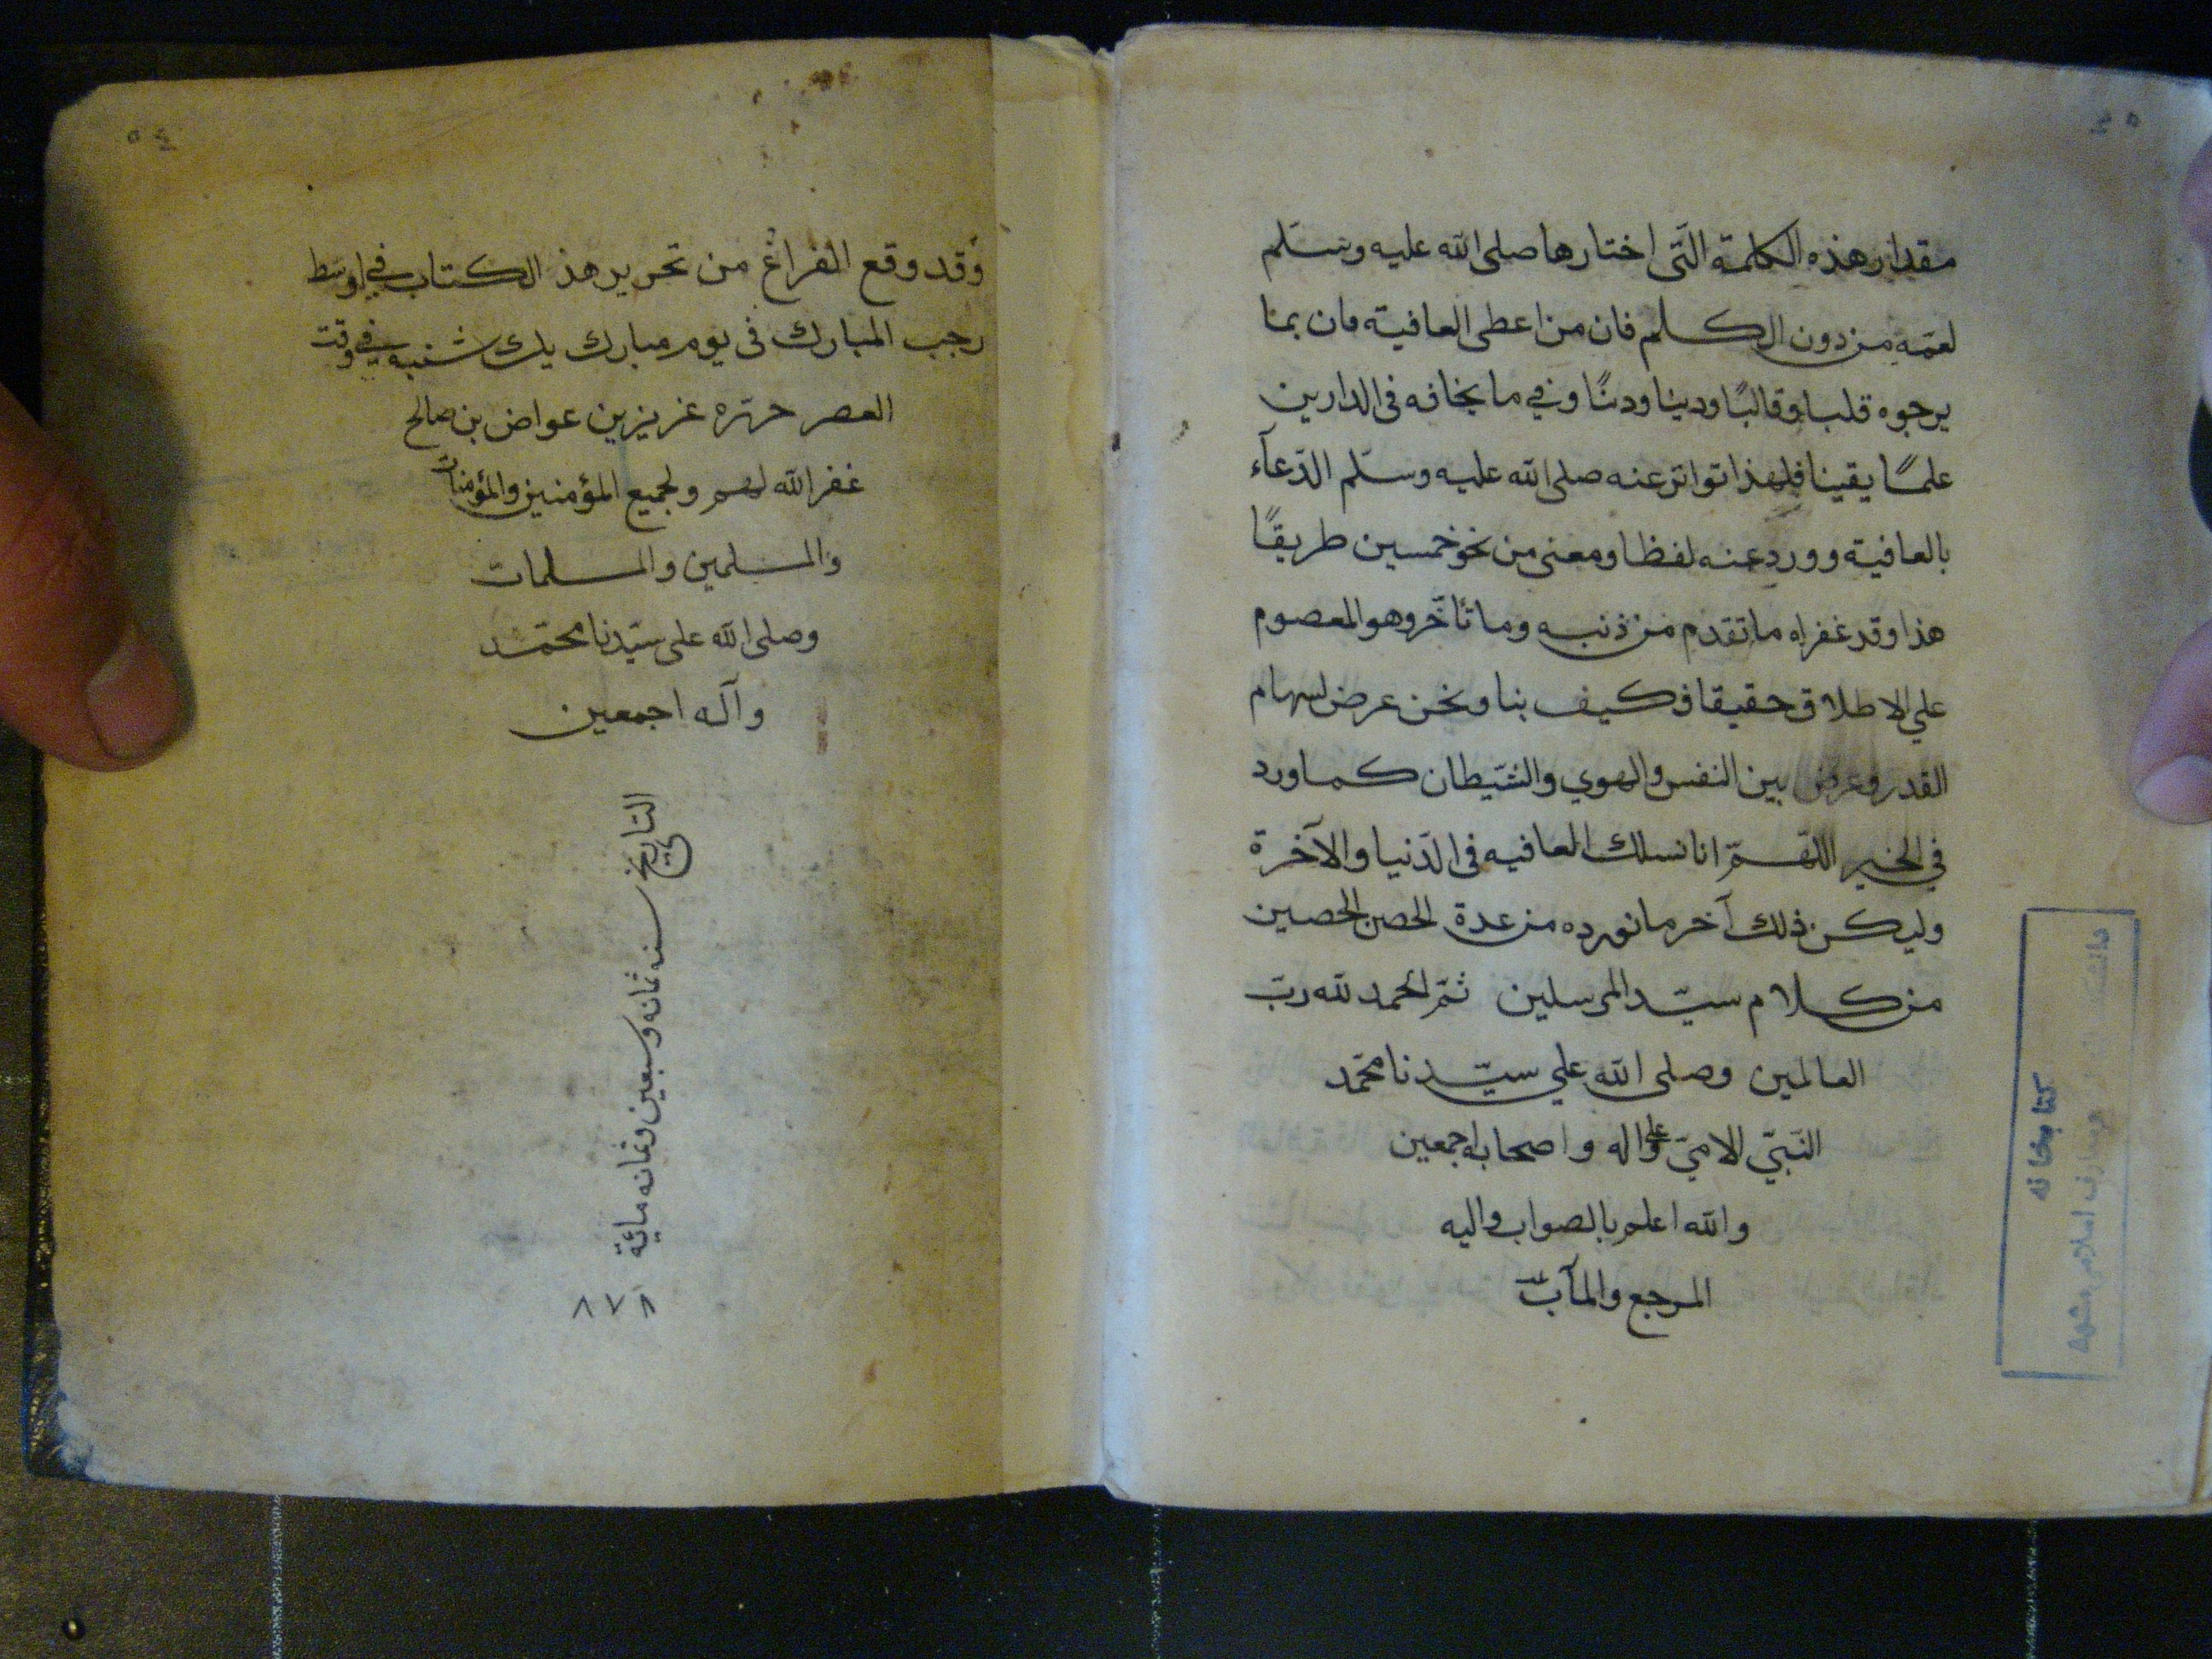 مقدار هذه الكلمة التّى اختارها صلى الله عليه وسّلم
لعمّه من دون الكلم فان من اعطى العافية فان بمنا
يرجوه قلبا وقالبًا ودينا ودنيًا وفي ما يخافه فى الدارين
علمًا يقينا فلهذا تواتر عنه صلى الله عليه وسلّم الدّعآء
بالعافية وورد عنه لفظا ومعنى من نحو خمسين طريقًا
هذا وقد غفر له ما تقدم من ذنبه وما تأخّر وهو المعصوم
علي الاطلاق حقيقا فكيف بنا ونحن عرض لسهام
القدر وعرض بين النفس والهوي والشيّطان كما ورد
في الخبر اللهمّ انا نسلك العافيه فى الدّنيا والآخرة
وليكن ذلك آخر ما نورده من عدة الحصن الحصين
من كلام سيّد المرسلين ثمّ الحمد لله ربّ
العالمين وصلى الله علي سيّدنا محمّد
النّبيّ الاميّ وعلى اله واصحابه اجمعين
والله اعلم بالصواب واليه
المرجع والمآب
كتابخانه
ومعارف اسلامى مشهد
٥٤
وقد وقع الفراغ من تحرير هذ الكتاب في اوسط
رجب المبارك فى يوم مبارك يك شنبه في وقت
العصر حرّره عزيز بن عواض بن صالح
غفر الله لهم ولجميع المؤمنين والمؤمنات
والمسلمين والمسلمات
وصلى الله على سيّدنا محمّد
وآله اجمعين
التاريخ سنه ثمانه وسبعين وثمانه مائة
٨٧٨